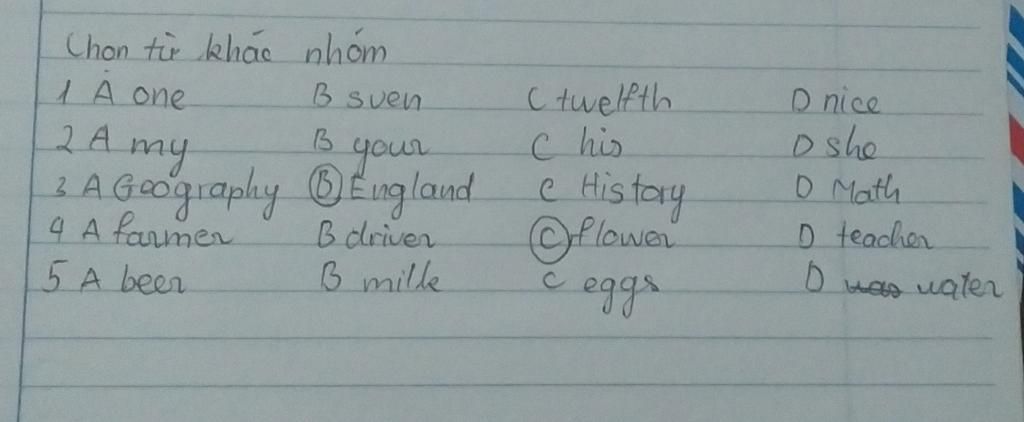 Chọn từ khác nhóm
1 A one B sven C twelfth D nice
2 A my B your C his D she
3 A Geography B England C History D Math
4 A farmer B driver C flower D teacher
5 A beer B milk C eggs D water